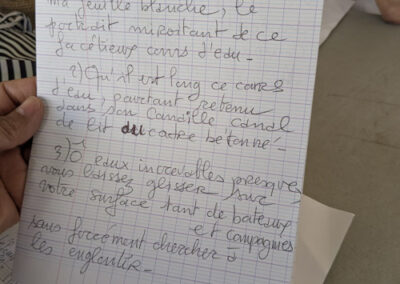 ma feuille blanche, le
portrait miroitant de ce
facétieux cours d'eau -
2) Qu'il est long ce cours
d'eau, pourtant retenu
dans son canal
de lit du cadre bétonné -
3) Ô eaux increvables presque,
vous laissez glisser sur
votre surface tant de bateaux
et compagnies
sans forcément chercher à
les engloutir -